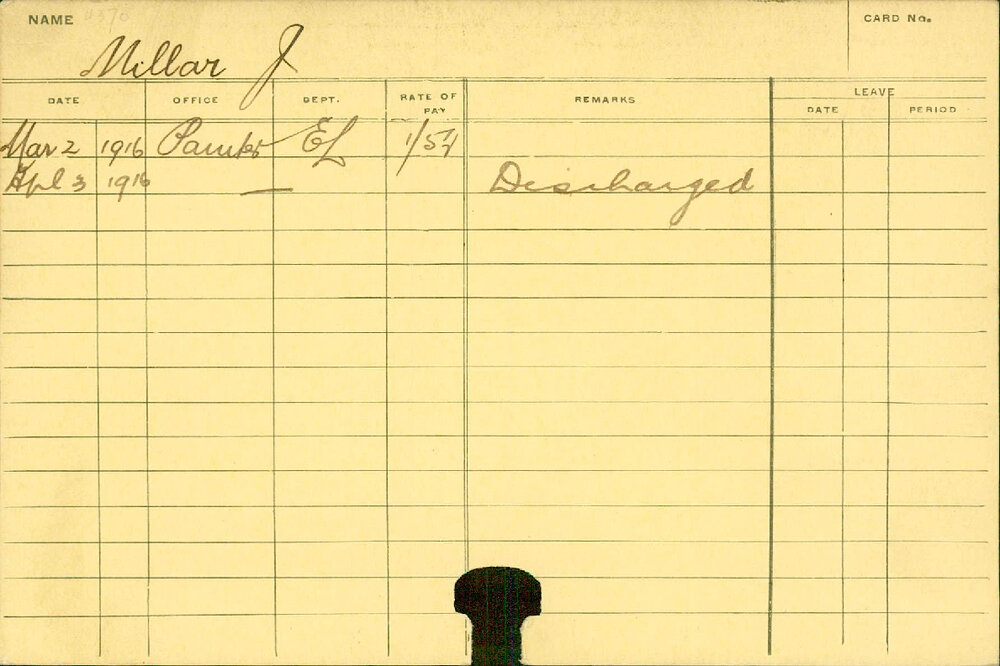 NAME
CARD No.
Millar J
DATE OFFICE DEPT. RATE OF PAY REMARKS LEAVE
DATE PERIOD
Mar 2 1916 EL
Apl 3 1916 — Discharged